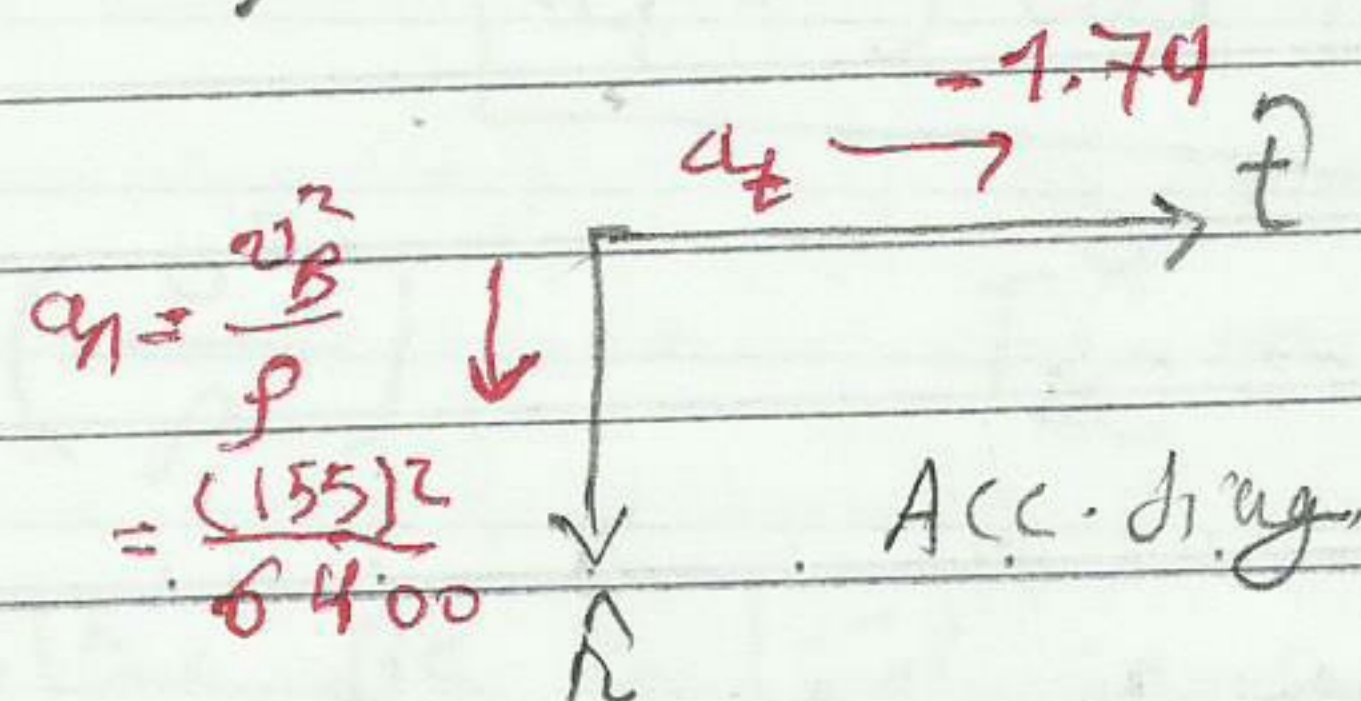 -1.74
a_t → t̂
a_n = v_B²/ρ
= (155)²/6400
Acc. diag.
n̂